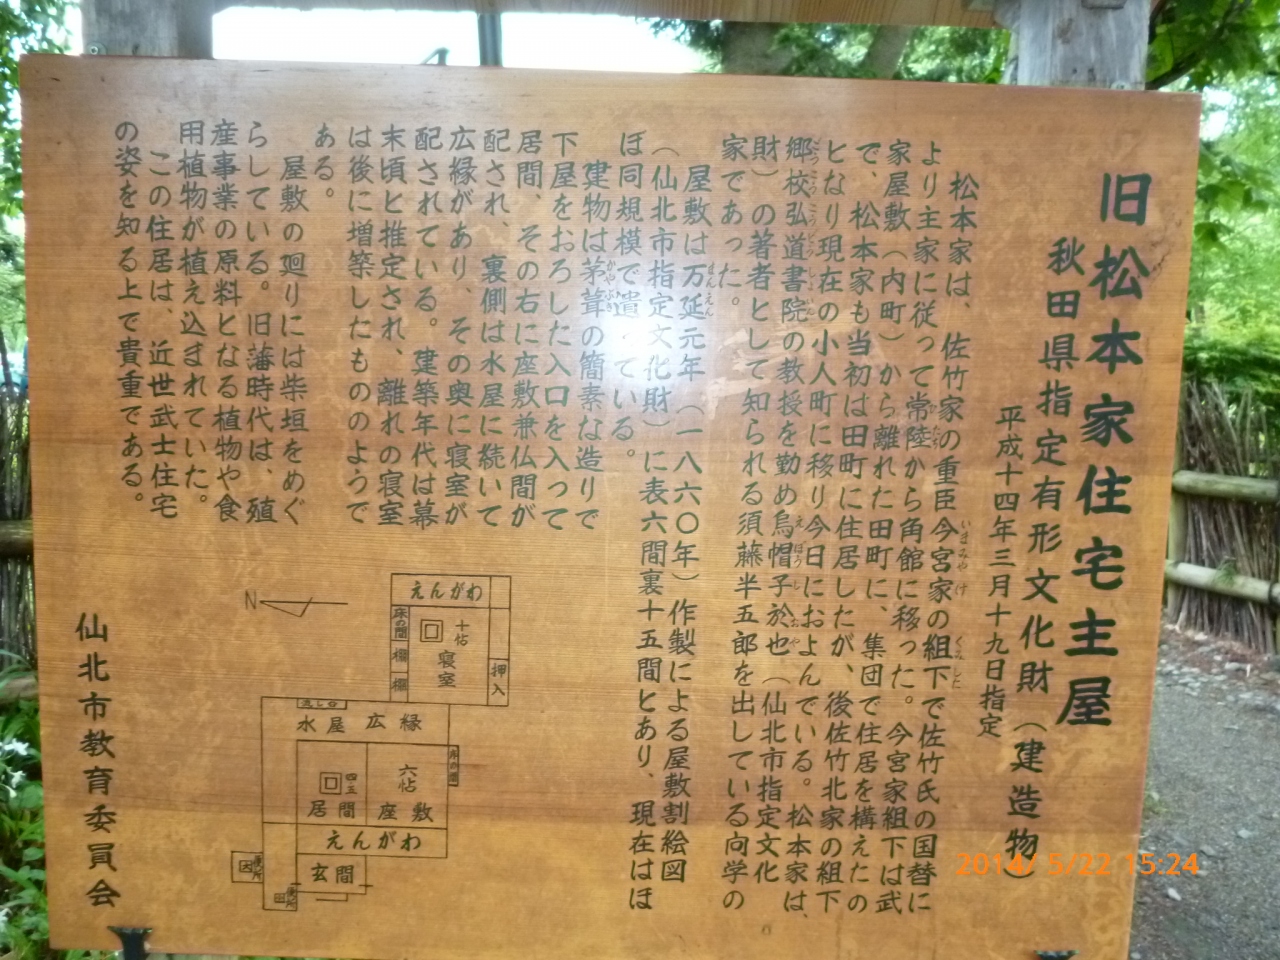 旧松本家住宅主屋
秋田県指定有形文化財（建造物）
平成十四年三月十九日指定
松本家は、佐竹家の重臣今宮家の組下で佐竹氏の国替に
より主家に従って常陸から角館に移った。今宮家組下は武
家屋敷（内町）から離れた田町に、集団で住居を構えたの
で、松本家も当初は田町に住居したが、後佐竹北家の組下
となり現在の小人町に移り今日におよんでいる。松本家は、
郷校弘道書院の教授を勤め烏帽子於也（仙北市指定文化
財）の著者として知られる須藤半五郎を出している向学の
家であった。
屋敷は万延元年（一八六〇年）作製による屋敷割絵図
（仙北市指定文化財）に表六間裏十五間とあり、現在はほ
ぼ同規模で遺っている。
建物は茅葺の簡素な造りで
下屋をおろした入口を入って
居間、その右に座敷兼仏間が
配され、裏側は水屋に続いて
広縁があり、その奥に寝室が
配されている。建築年代は幕
末頃と推定され、離れの寝室
は後に増築したもののようで
ある。
屋敷の廻りには柴垣をめぐ
らしている。旧藩時代は、殖
産事業の原料となる植物や食
用植物が植え込まれていた。
この住居は、近世武士住宅
の姿を知る上で貴重である。
N
えんがわ
床の間
棚
棚
十帖
寝室
押入
水屋
広縁
居間
六帖
座敷
えんがわ
玄間
仙北市教育委員会
2014/ 5/22 15:24